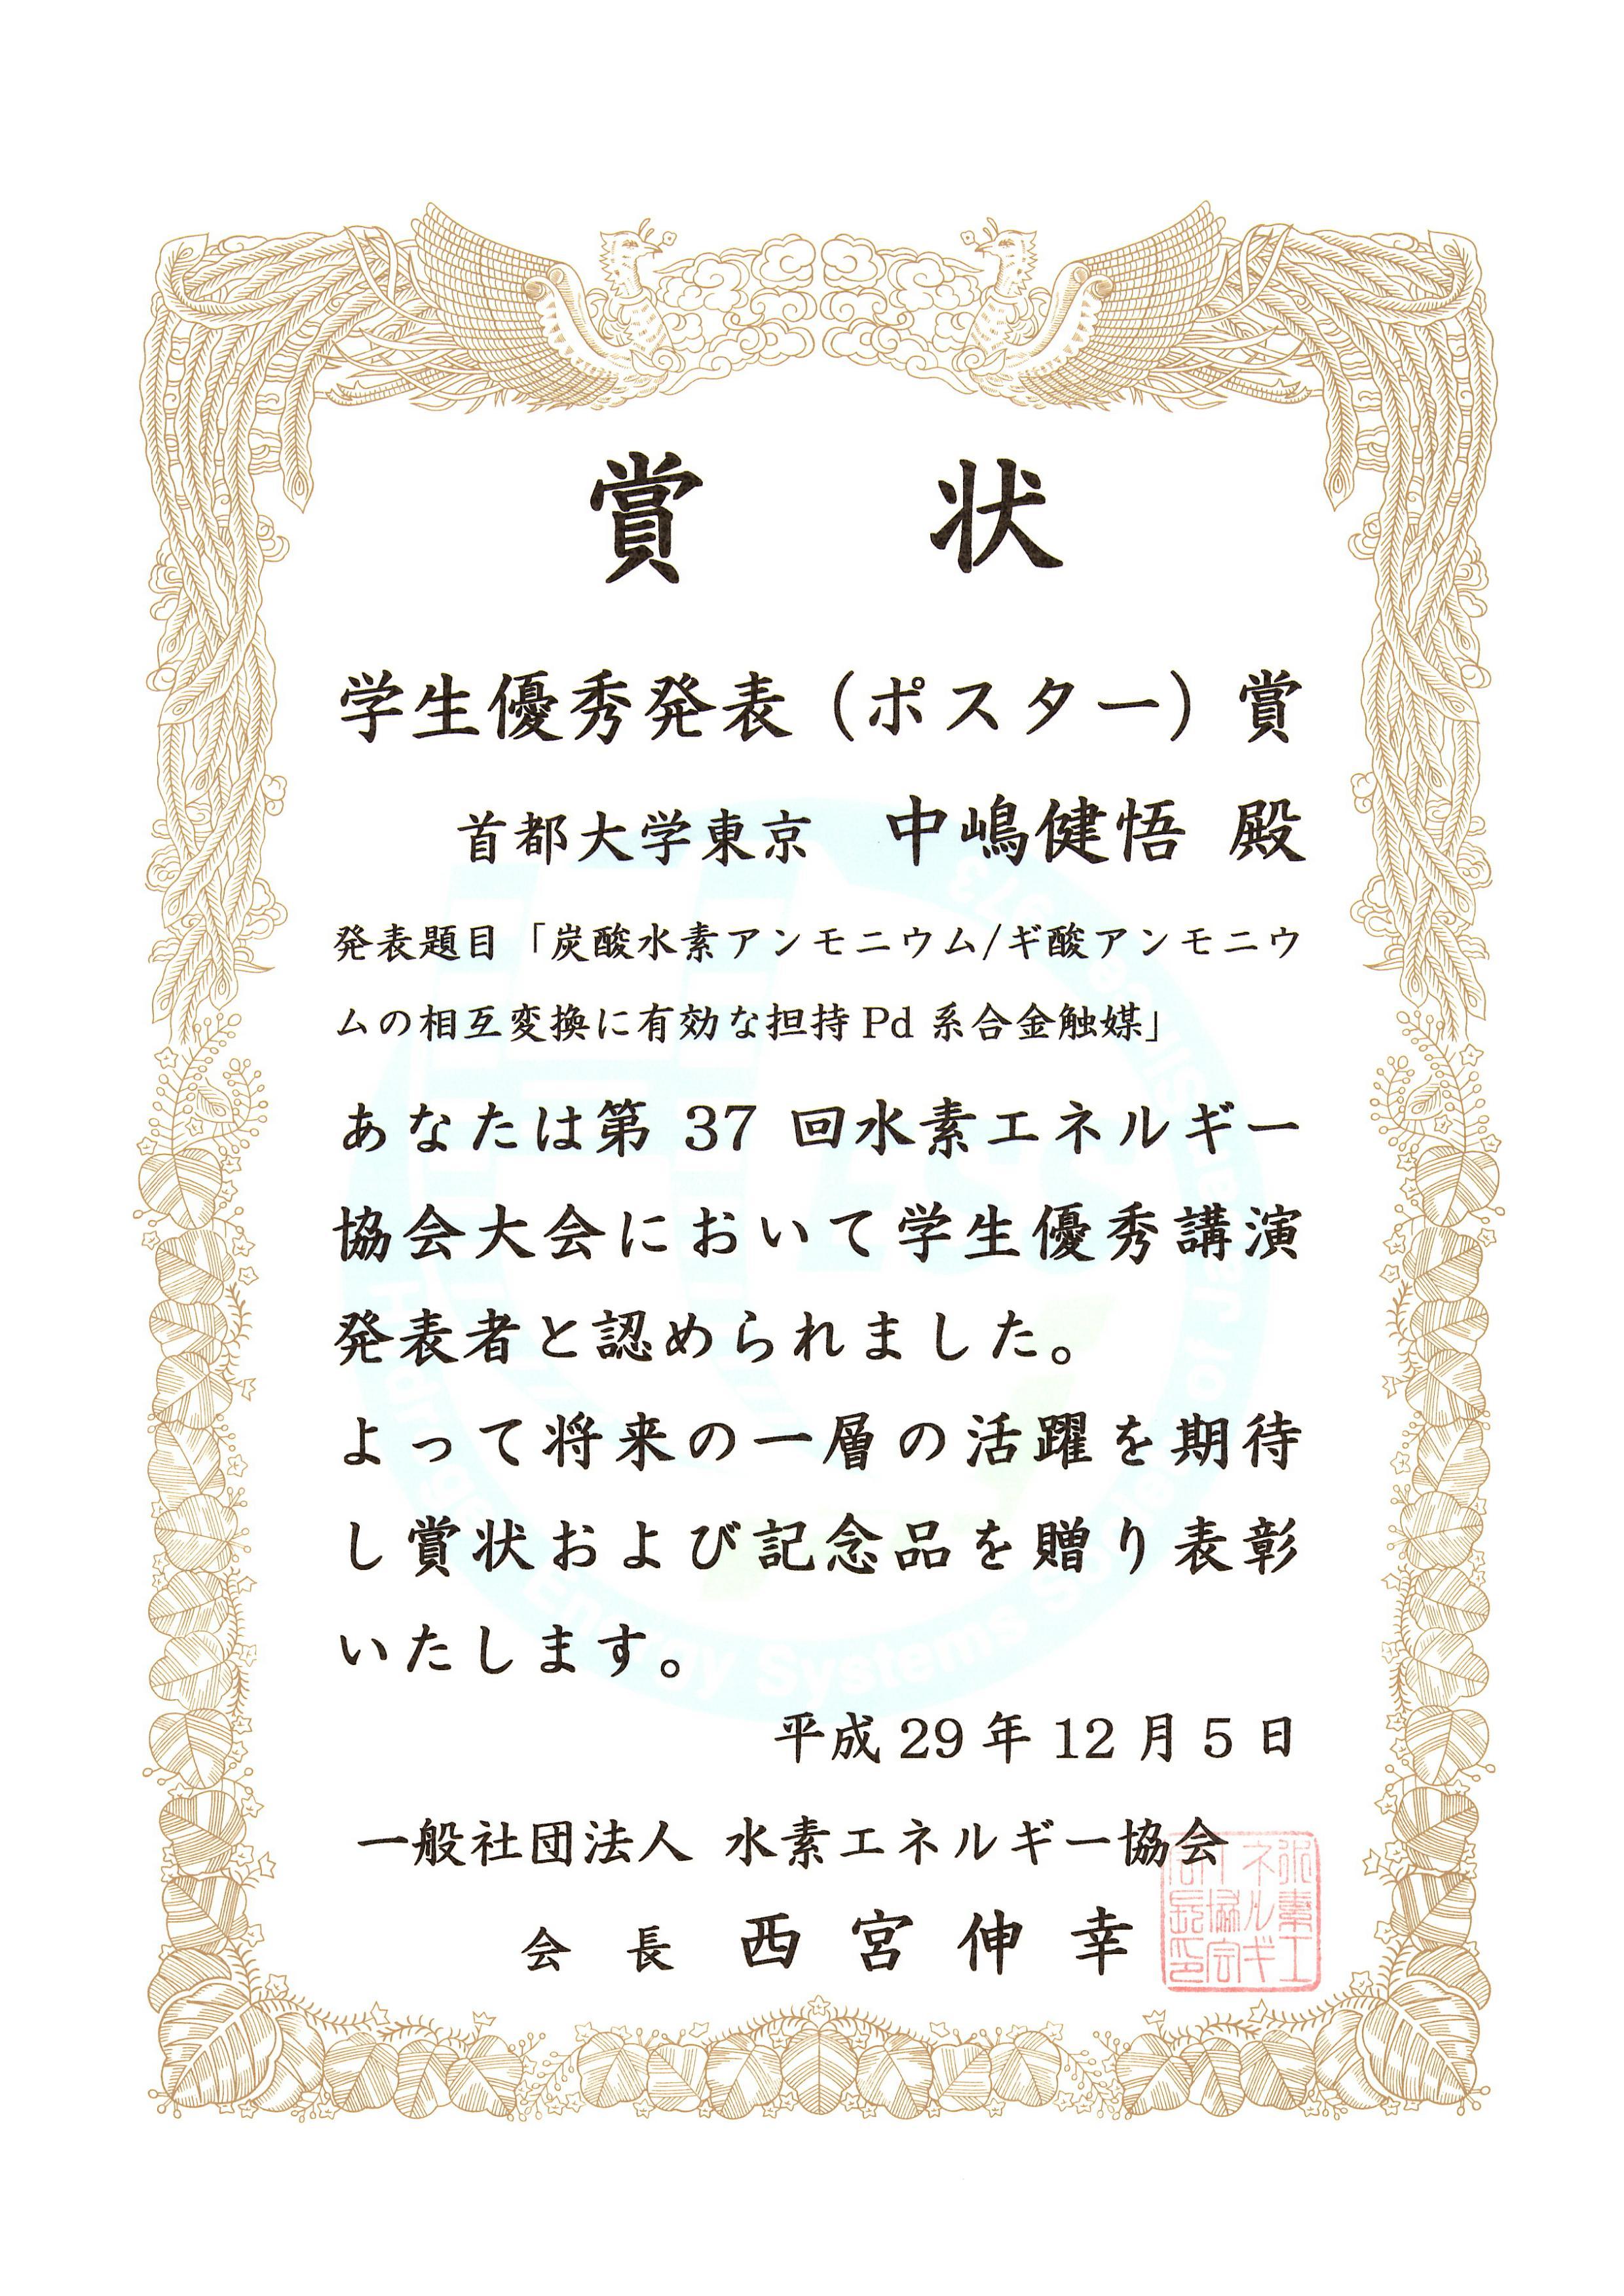 賞状
学生優秀発表（ポスター）賞
首都大学東京 中嶋健悟 殿
発表題目「炭酸水素アンモニウム/ギ酸アンモニウ
ムの相互変換に有効な担持 Pd 系合金触媒」
あなたは第 37 回水素エネルギー
協会大会において学生優秀講演
発表者と認められました。
よって将来の一層の活躍を期待
し賞状および記念品を贈り表彰
いたします。
平成 29 年 12 月 5 日
一般社団法人 水素エネルギー協会
会長 西宮伸幸
水素エ
ネルギ
ー協会
会長印